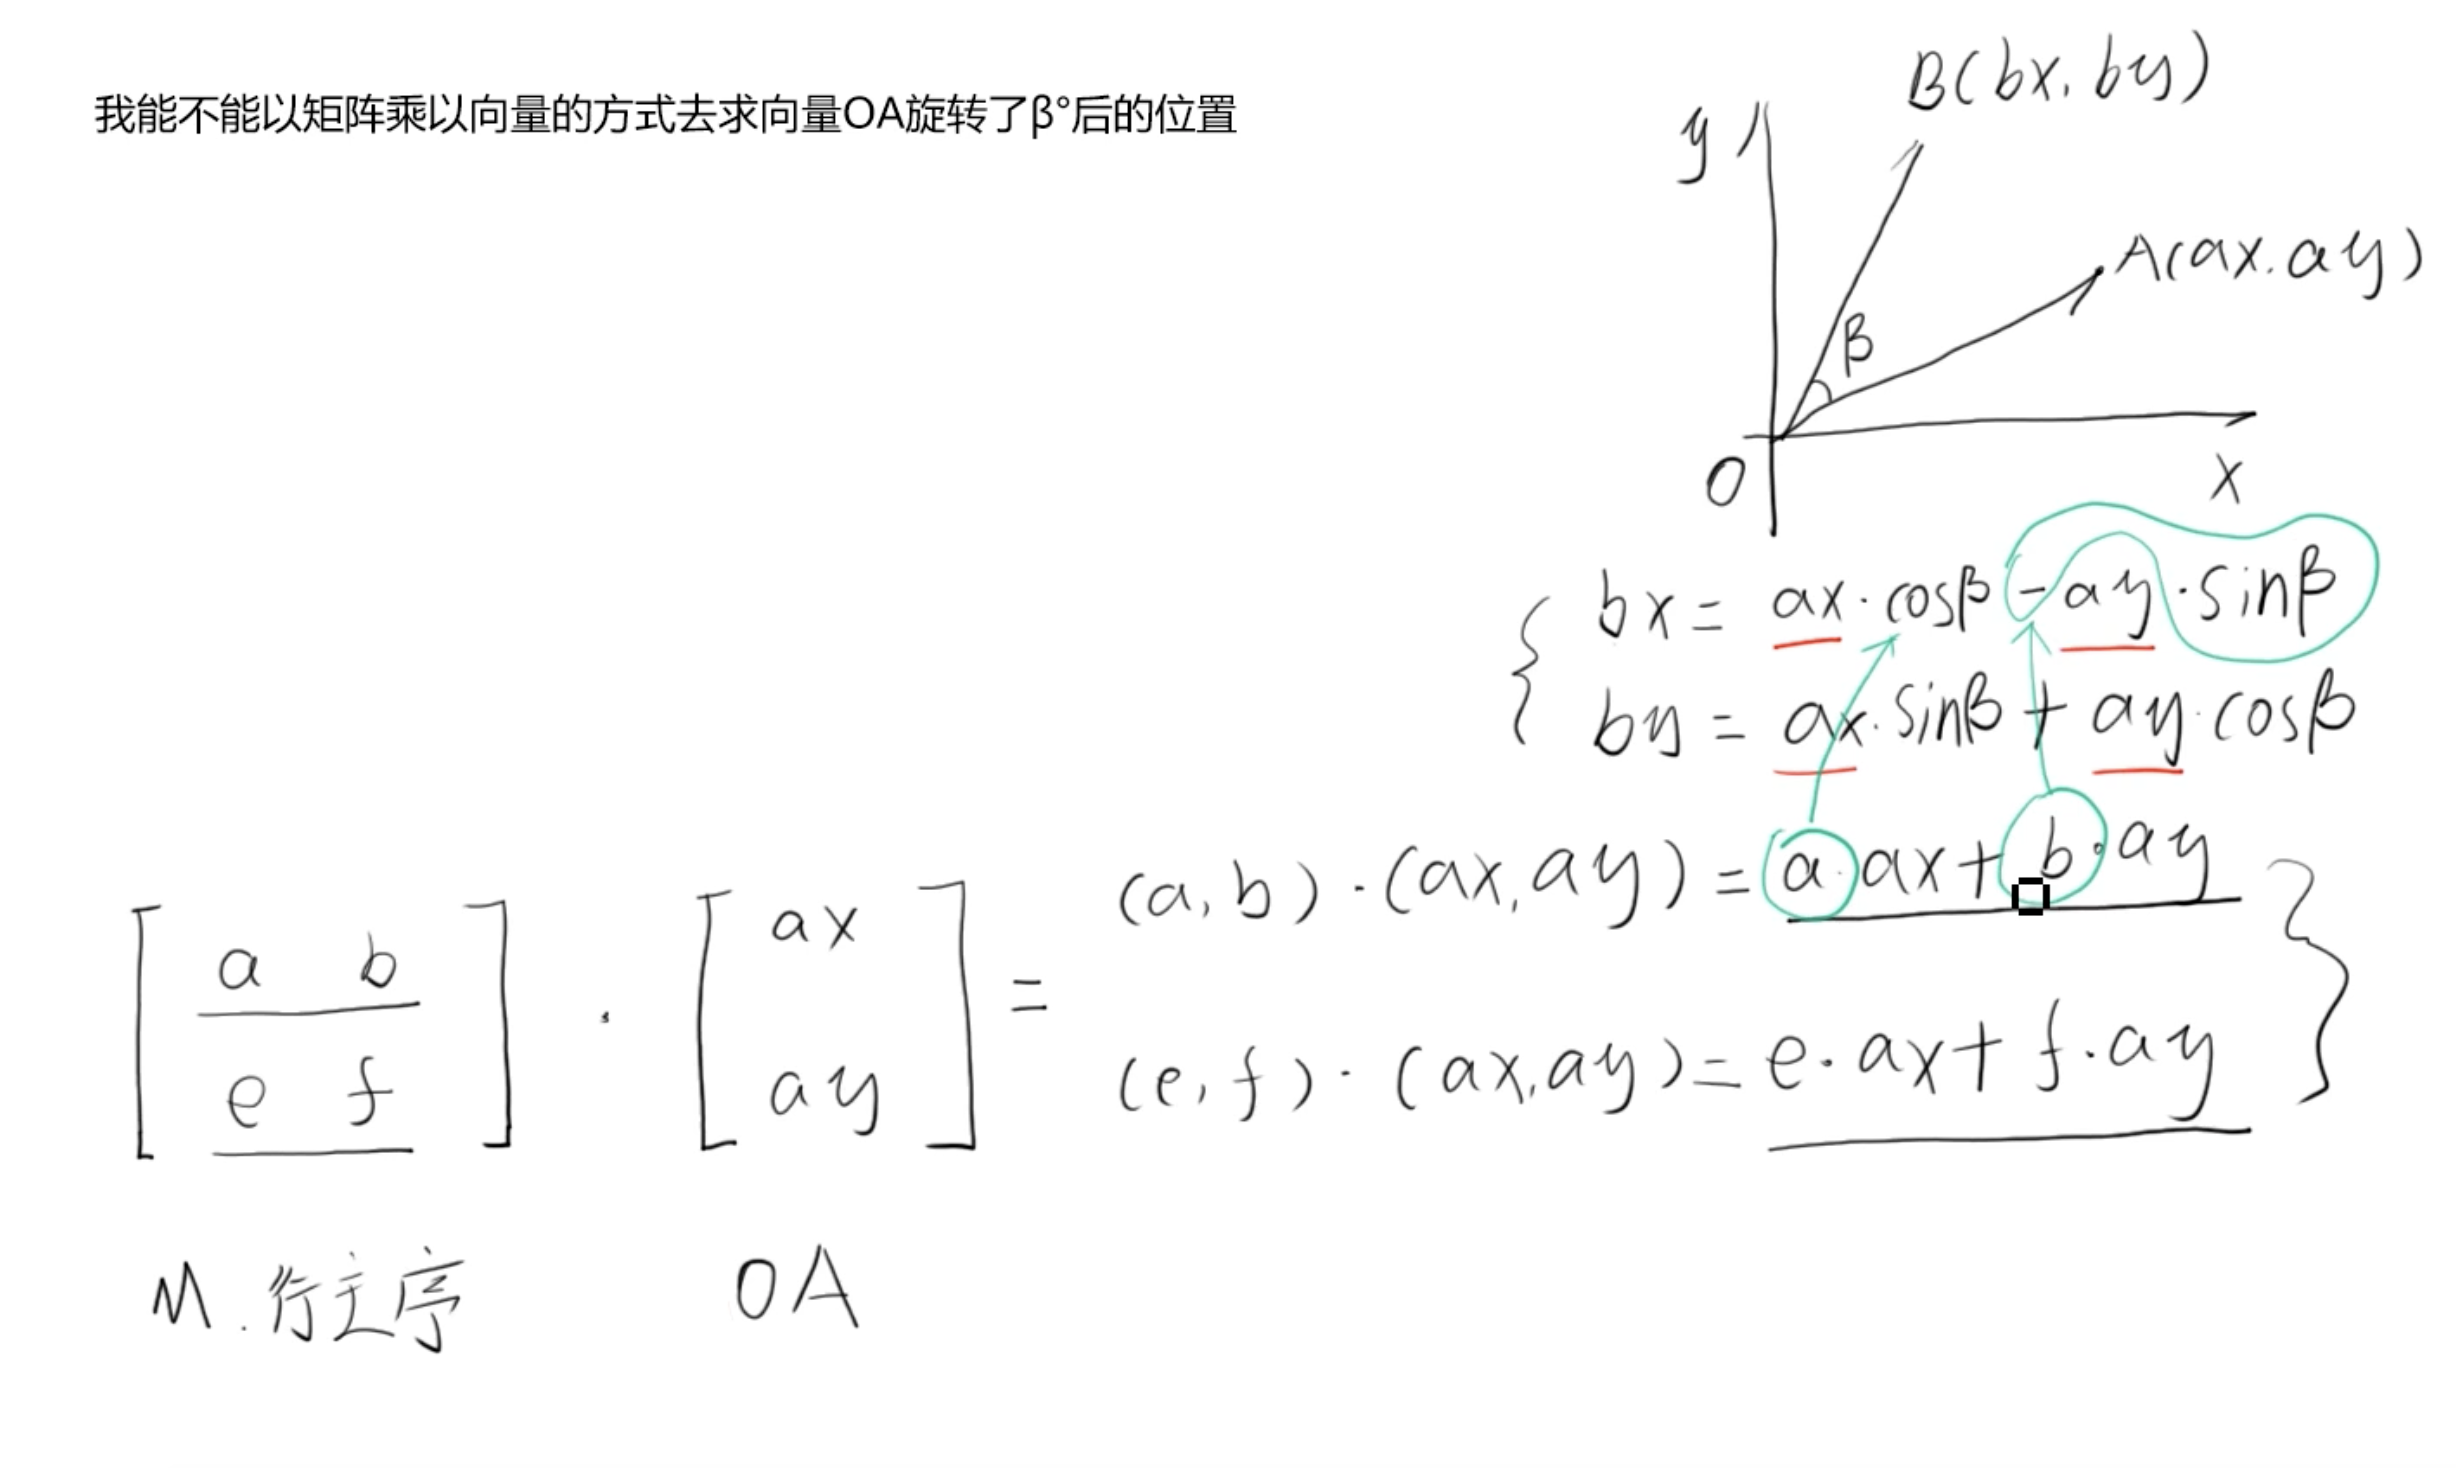 我能不能以矩阵乘以向量的方式去求向量OA旋转了β°后的位置
B(bx, by)
y
A(ax.ay)
β
O
x
bx = ax·cosβ -ay·sinβ
by = ax·sinβ + ay·cosβ
(a,b)·(ax,ay) = a·ax+b·ay
a b
e f
·
ax
ay
=
(e,f)·(ax,ay) = e·ax+f·ay
M.行主序
OA